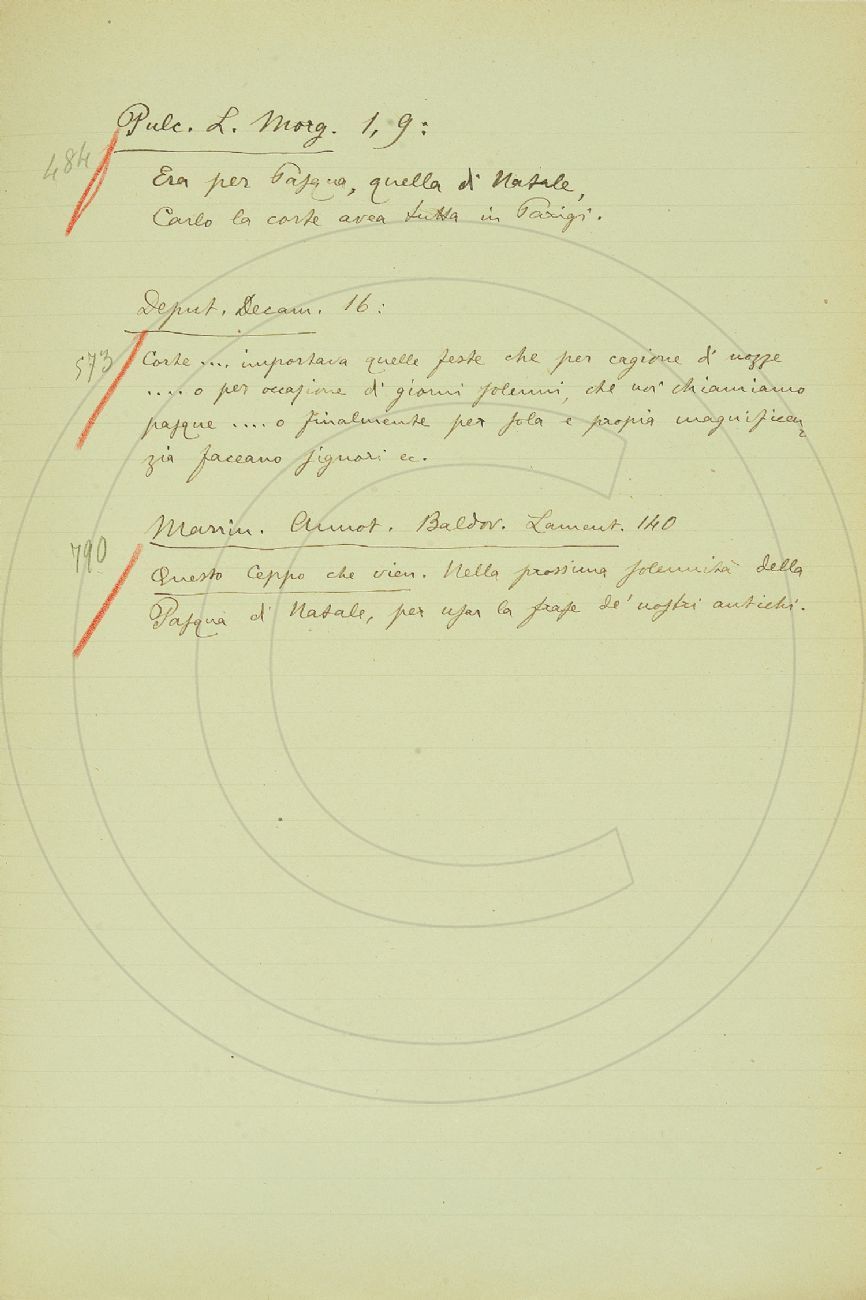 Pulc. L. Morg. 1, 9:
484
Era per Pasqua, quella di Natale,
Carlo la corte avea tutta in Parigi.
Deput. Decam. 16:
573
Corte ... importava quelle feste che per cagione di nozze
.... o per occasione di giorni solenni, che noi chiamiamo
pasque .... o finalmente per sola e propia magnificen
zia faceano signori ec.
Marrin. Annot. Baldov. Lament. 140
790
Questo Ceppo che vien. Nella prossima solennità della
Pasqua di Natale, per usar la frase de' nostri antichi.